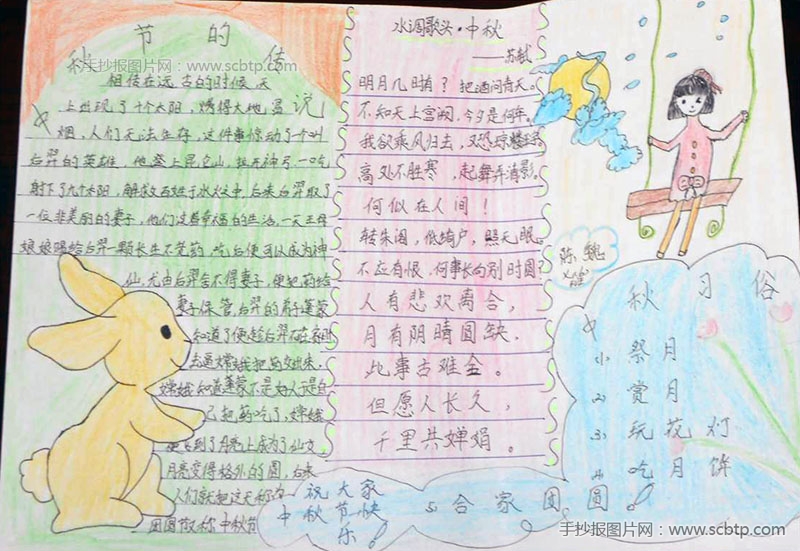 中秋节的传说
手抄报图片网：www.scbtp.com
相传在远古的时候,天
上出现了十个太阳,烤得大地冒
烟,人们无法生存,这件事惊动了一个叫
后羿的英雄,他登上昆仑山,拉开神弓,一口气
射下了九个太阳,解救百姓于水火之中,后来后羿取了
一位非美丽的妻子,他们过着幸福的生活,一天王母
娘娘赐给后羿一颗长生不死药,吃后便可以成为神
仙,后羿舍不得妻子,便把药给
妻子保管,后羿的弟子蓬蒙
知道了便趁后羿不在家时
去逼嫦娥把药交出来,
嫦娥知道蓬蒙不是好人于是自
己把药吃了,嫦娥
飞到了月亮上成为了仙女,
月亮变得格外的圆,后来
人们就把这天称为
团圆故称中秋节
水调歌头·中秋
——苏轼
明月几时有？把酒问青天。
不知天上宫阙,今夕是何年。
我欲乘风归去,又恐琼楼玉宇。
高处不胜寒,起舞弄清影。
何似在人间！
转朱阁,低绮户,照无眠。
不应有恨,何事长向别时圆？
人有悲欢离合,
月有阴晴圆缺,
此事古难全。
但愿人长久,
千里共婵娟。
陈 魏
中秋习俗
1、祭月
2、赏月
3、玩花灯
4、吃月饼
5、合家团圆
祝大家
中秋节快
乐！
手抄报图片网：www.scbtp.com